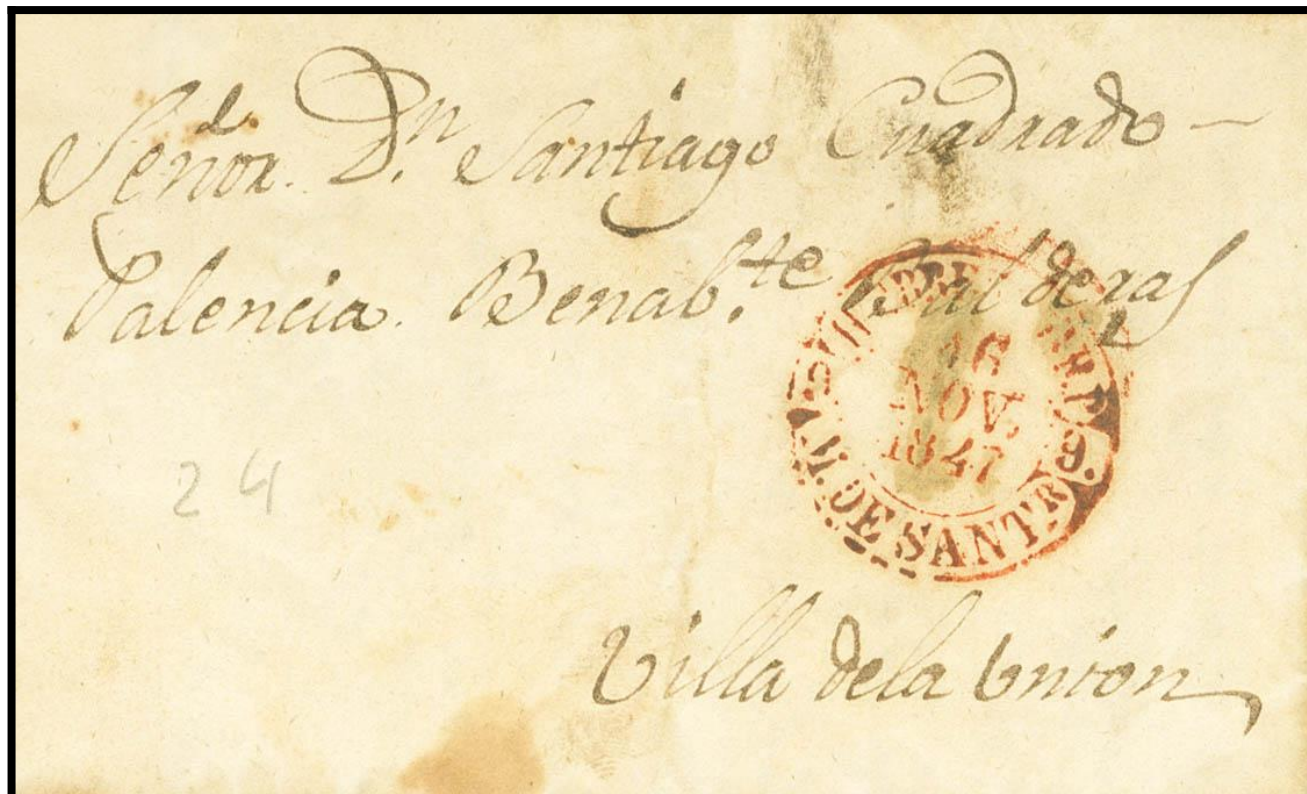 Señor. D.ⁿ Santiago Cuadrado
Palencia. Benab.te
16
NOV.
1847
M. DE SANT.R 9.
24
Villa dela Union